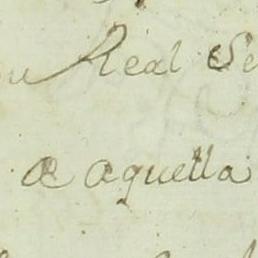 Real Se
a aquella